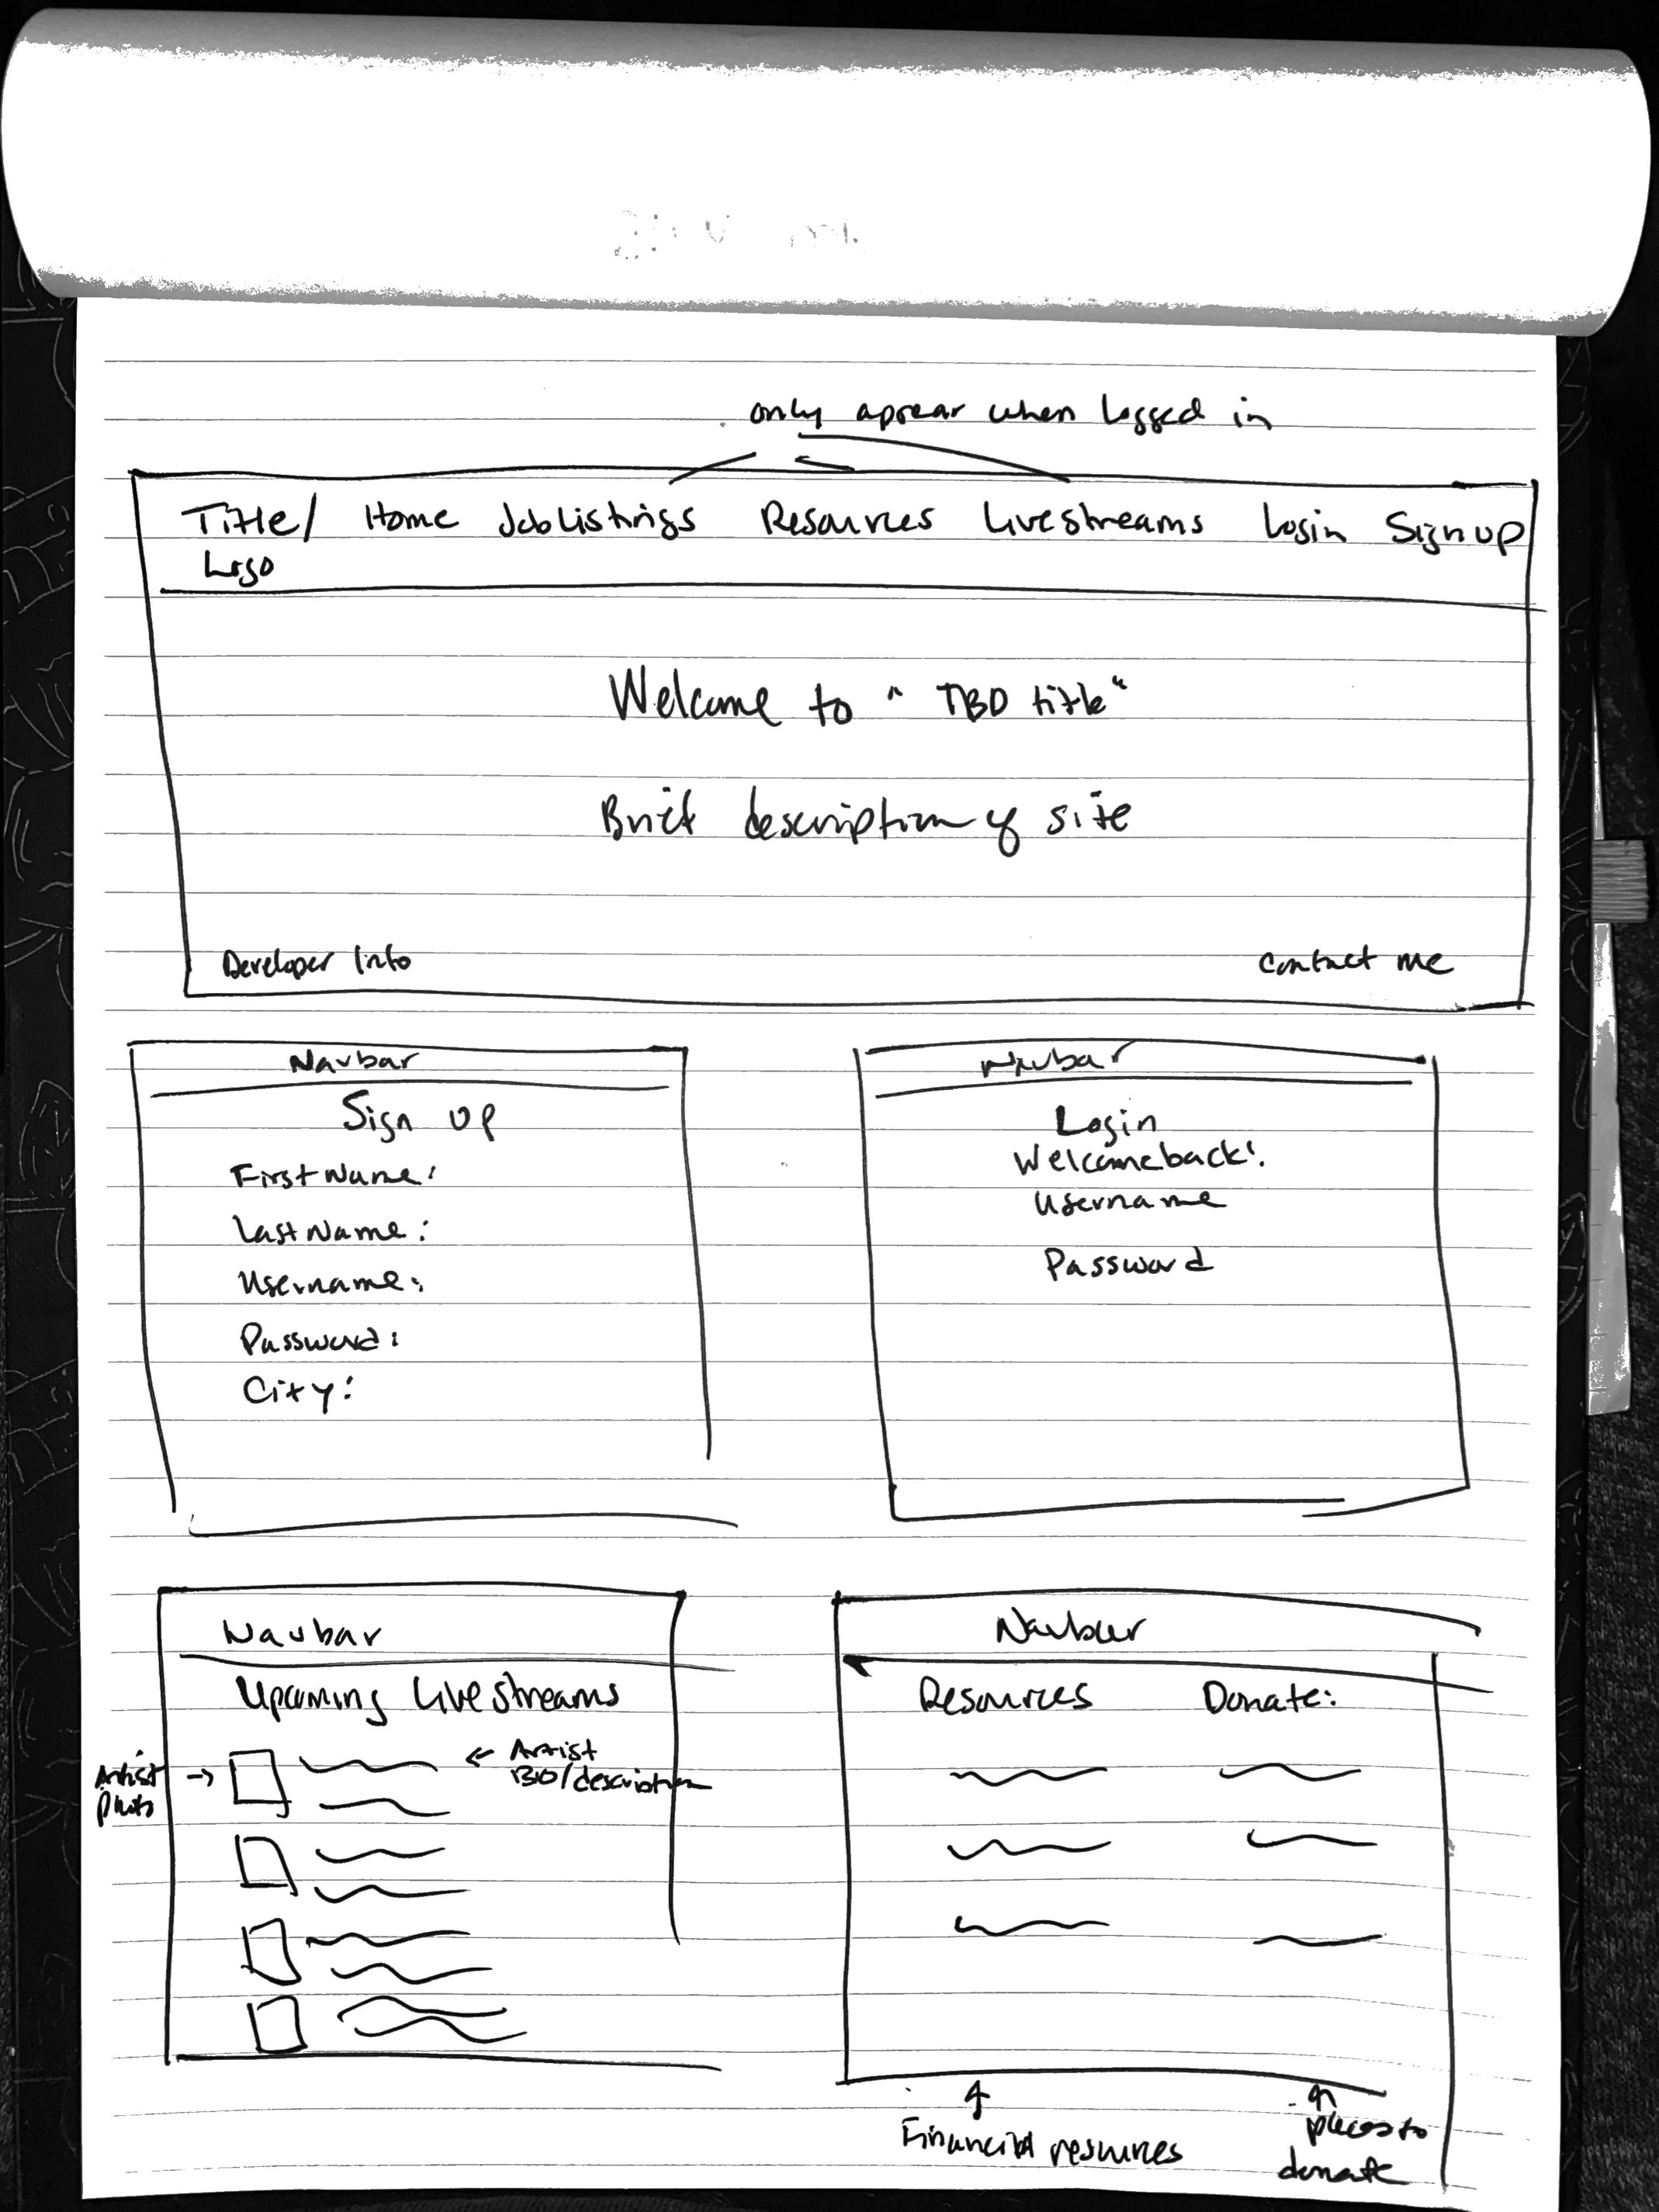 only appear when logged in
Title/ Home Job Listings Resources Livestreams Login Sign up
Logo
Welcome to "TBD title"
Brief description of site
Developer Info
Contact me
Navbar
Sign up
First Name:
Last Name:
Username:
Password:
City:
Navbar
Login
Welcome back!
Username
Password
Navbar
Upcoming Livestreams
Artist
photo
Artist
BIO/description
Navbar
Resources Donate:
Financial resources
places to
donate